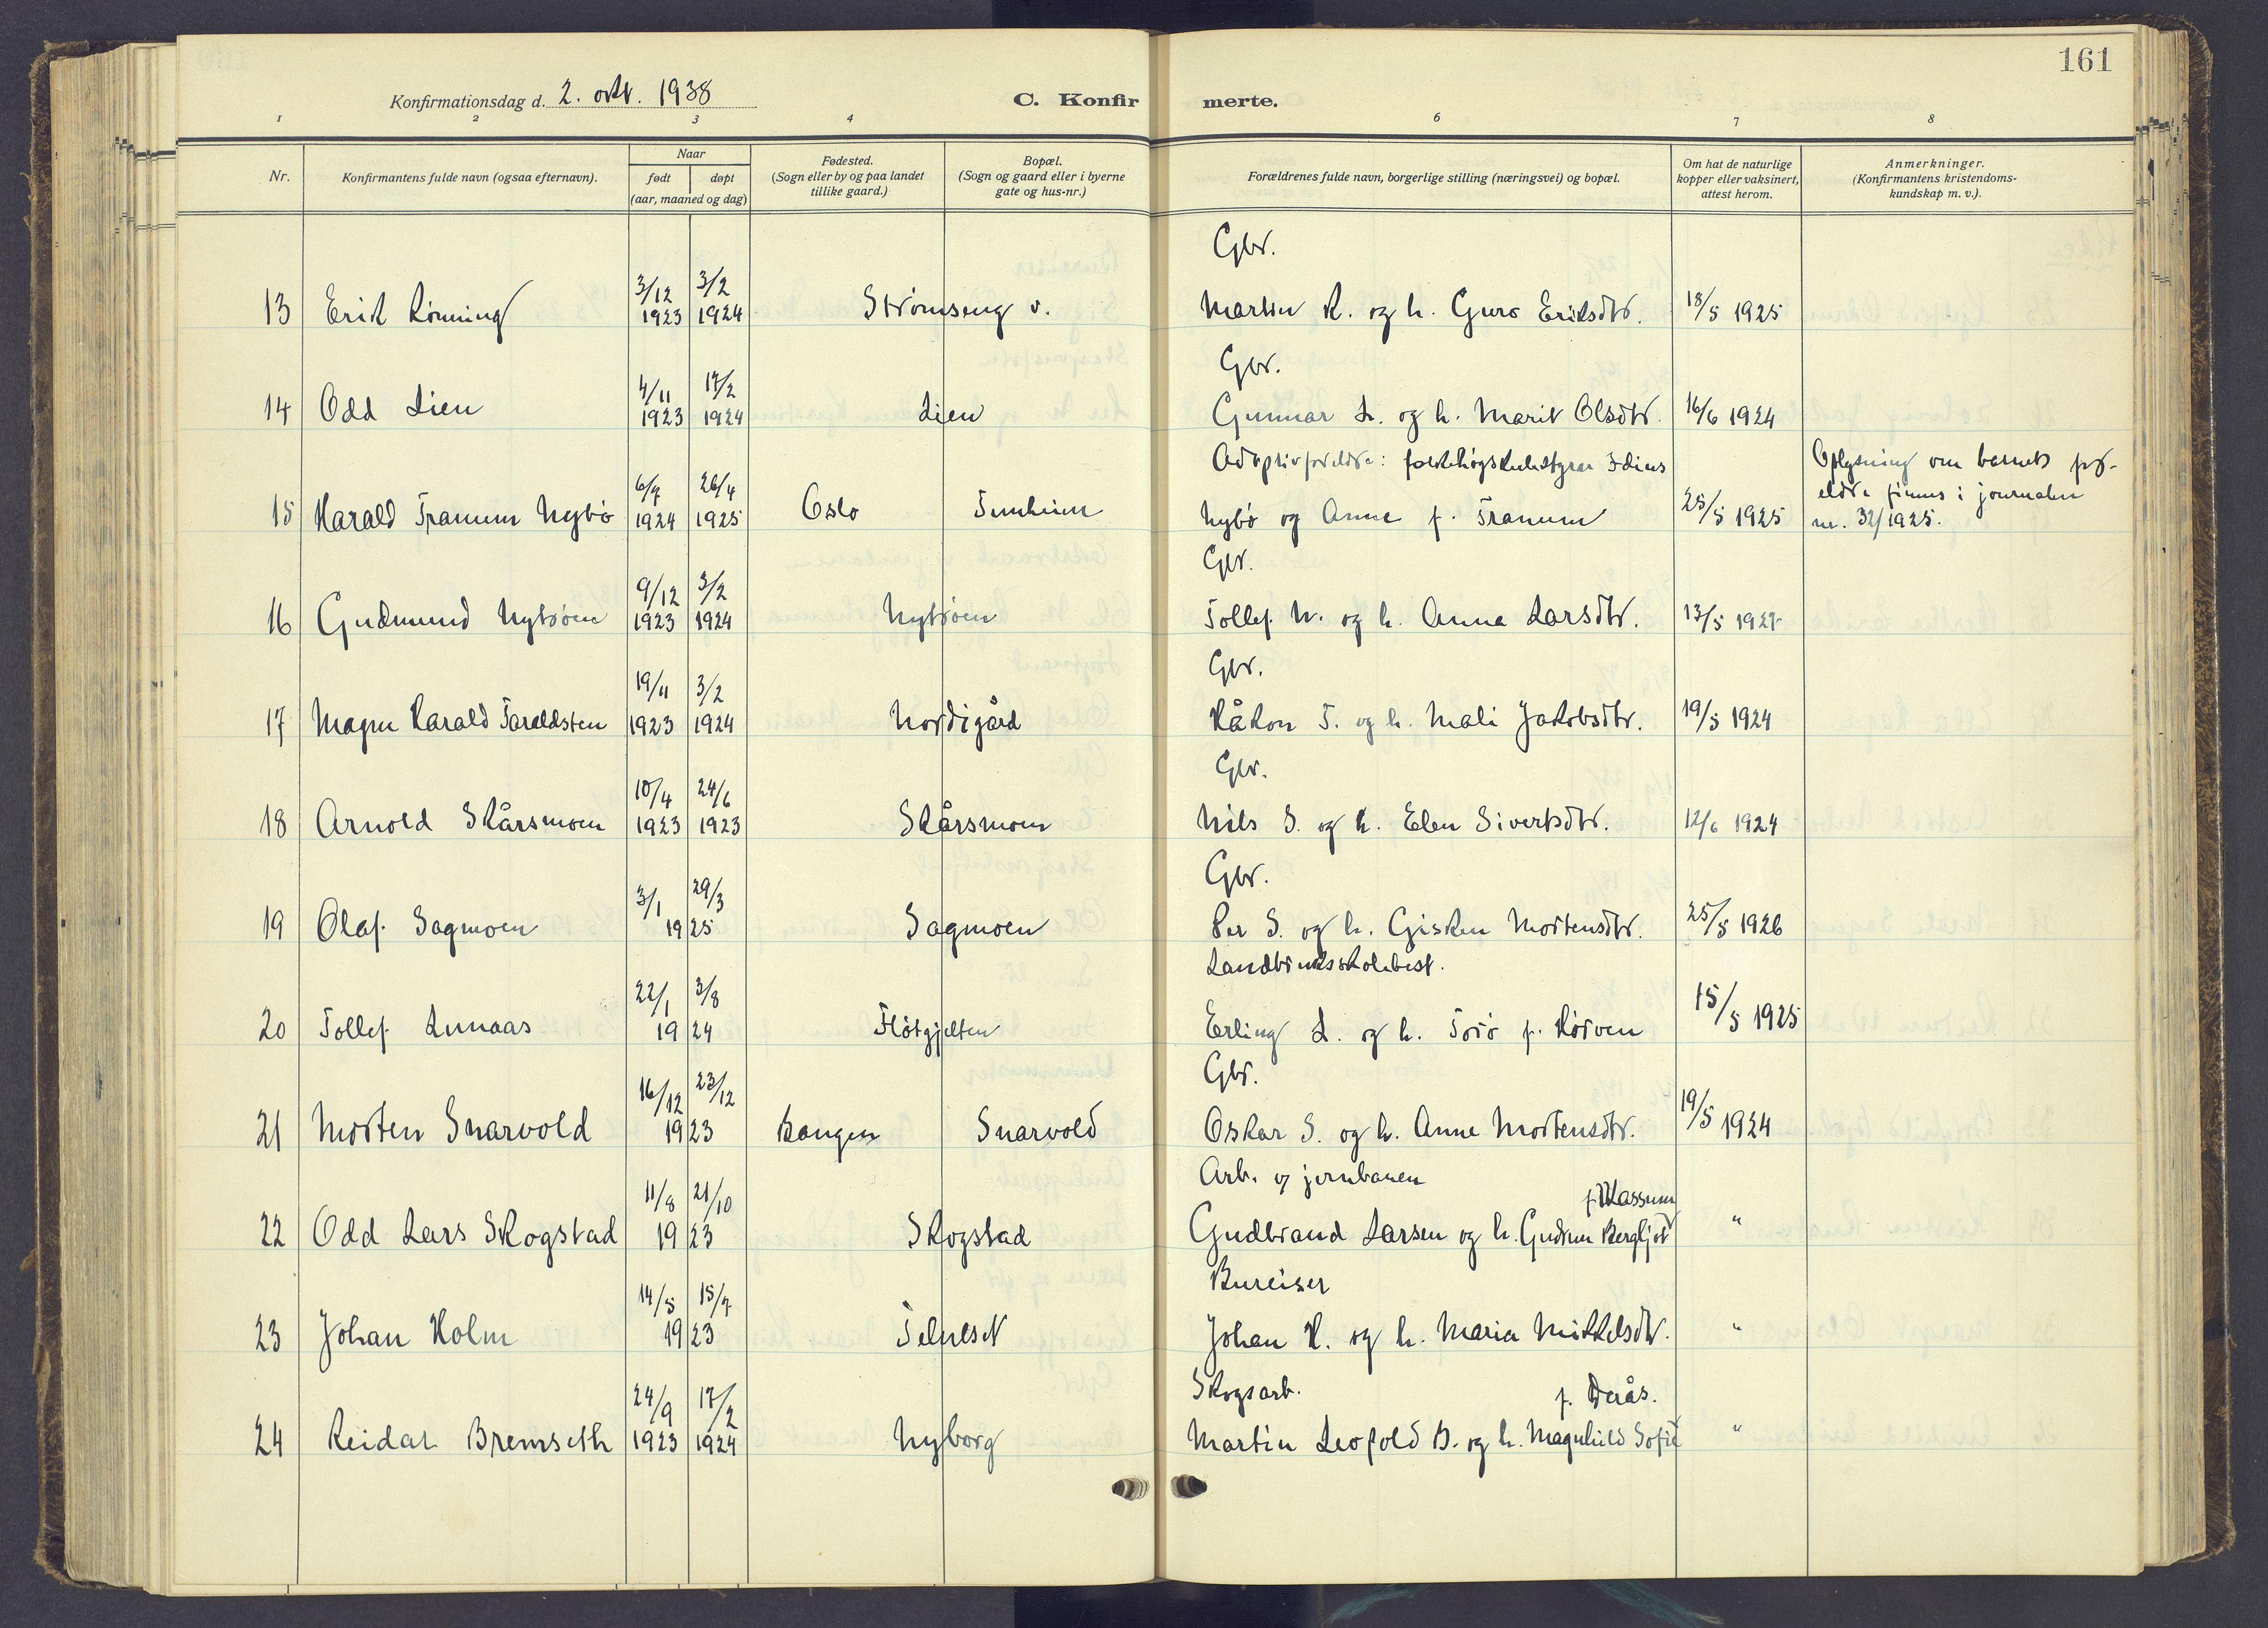 161
Konfirmationsdag d. 2. okt. 1938
C. Konfirmerte.
1 2 3 4 6 7 8
Nr.
Konfirmantens fulde navn (ogsaa efternavn).
Naar
født døpt
(aar, maaned og dag)
Fødested.
(Sogn eller by og paa landet
tillike gaard.)
Bopæl.
(Sogn og gaard eller i byerne
gate og hus-nr.)
Forældrenes fulde navn, borgerlige stilling (næringsvei) og bopæl.
Om hat de naturlige
kopper eller vaksinert,
attest herom.
Anmerkninger.
(Konfirmantens kristendoms-
kundskap m. v.).
Gbr.
3/12 3/2
13 Erik Rønning 1923 1924 Strømseng v. Martin R. og h. Guro Eriksdtr. 18/5 1925
Gbr.
4/11 17/2
14 Odd Lien 1923 1924 Lien Gunnar L. og h. Marit Olsdtr. 16/6 1924
Adoptivforeldre: folkehøgskulestyrar
Oplysning om barnets for-
6/7 26/4
eldre finnes i journalen
15 Harald Tranum Nybø 1924 1925 Oslo Nybø og Anne f. Tranum 25/5 1925
nr. 32/1925.
Gbr.
9/12 3/2
16 Gudmund Nytrøen 1923 1924 Nytrøen Tollef N. og h. Anna Larsdtr. 13/5
Gbr.
19/11 3/2
17 Magne Harald Taraldsten 1923 1924 Nordigård Håkon T. og h. Mali Jakobsdtr. 19/5 1924
Gbr.
10/4 24/6
18 Arnold Skårsmoen 1923 1923 Skårsmoen Nils S. og h. Elen Sivertsdtr. 12/6 1924
Gbr.
3/1 29/3
19 Olaf Sagmoen 1925 Sagmoen Per S. og h. Gisken Mortensdtr. 25/5 1926
Landbruksskolebest.
22/1 3/8
20 Tollef Lunaas 1924 Fløtgjelten Erling L. og h. Torø f. Rørven 15/5 1925
Gbr.
16/12 23/12
21 Morten Snarvold 1923 Bangen Snarvold Oskar S. og h. Anne Mortensdtr. 19/5 1924
Arb. v jernbanen
11/8 21/10
f. Klassum
22 Odd Lars Skogstad 1923 Skogstad Gudbrand Larsen og h. Gudrun Bergljot "
Bureiser
14/5 15/7
23 Johan Holm 1923 Telneset Johan H. og h. Maria Mikkelsdtr. "
Skogsarb.
f. Deås.
24/9 17/2
24 Reidar Bremseth 1923 1924 Nyborg Martin Leopold B. og h. Magnhild Sofie "